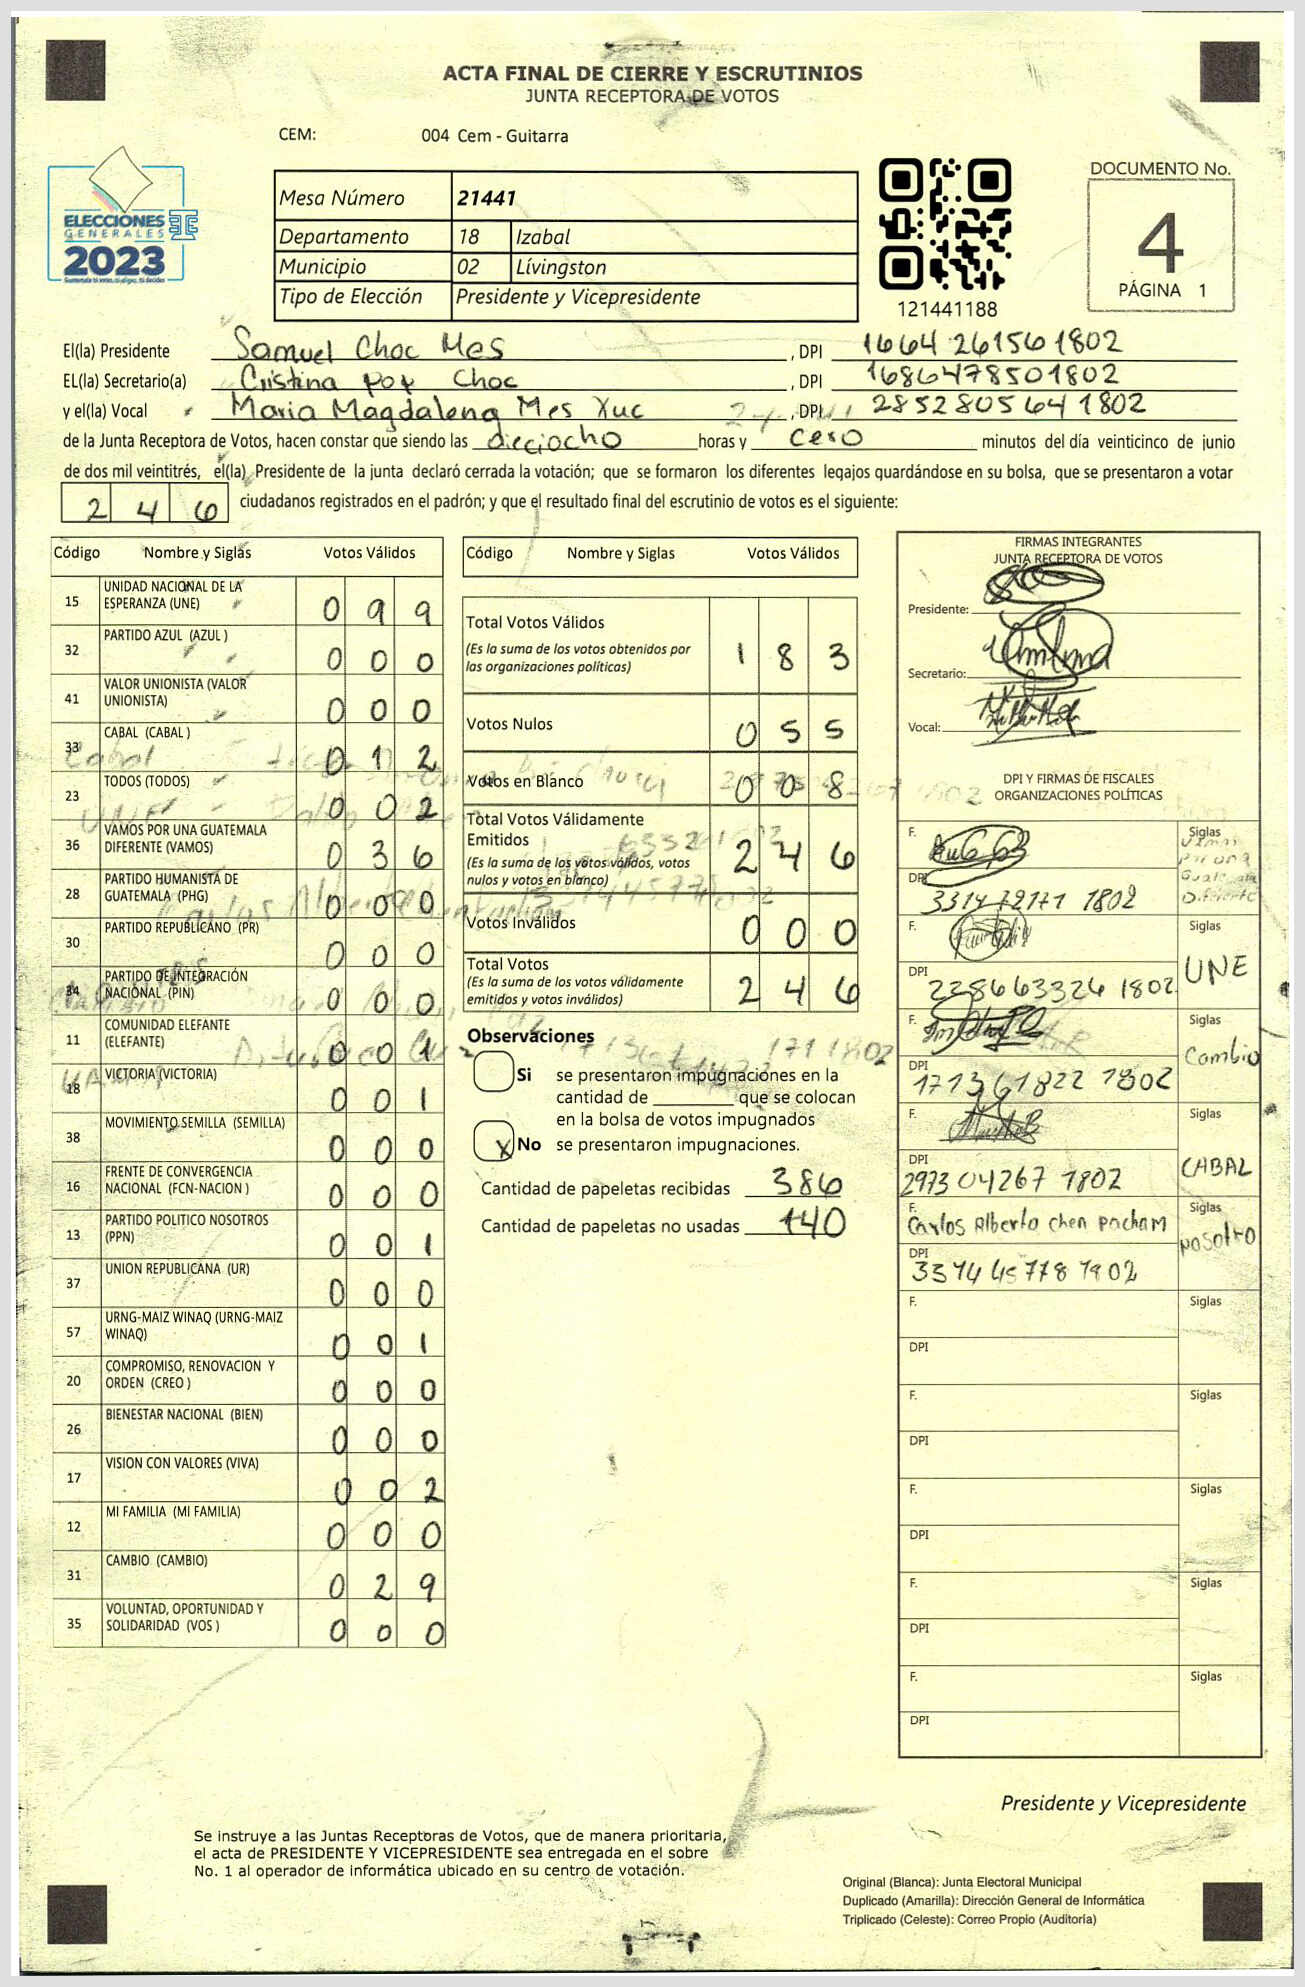 ACTA FINAL DE CIERRE Y ESCRUTINIOS
JUNTA RECEPTORA DE VOTOS
CEM: 004 Cem - Guitarra
DOCUMENTO No.
4
PÁGINA 1
ELECCIONES
GENERALES
2023
Mesa Número 21441
Departamento 18 Izabal
Municipio 02 Lívingston
Tipo de Elección Presidente y Vicepresidente
121441188
El(la) Presidente Samuel Choc Mes , DPI 1664 26156 1802
EL(la) Secretario(a) Cristina pop Choc , DPI 1686478501802
y el(la) Vocal Maria Magdalena Mes Xuc , DPI 2852805641802
de la Junta Receptora de Votos, hacen constar que siendo las dieciocho horas y cero minutos del día veinticinco de junio
de dos mil veintitrés, el(la) Presidente de la junta declaró cerrada la votación; que se formaron los diferentes legajos guardándose en su bolsa, que se presentaron a votar
2 4 6 ciudadanos registrados en el padrón; y que el resultado final del escrutinio de votos es el siguiente:
Código Nombre y Siglas Votos Válidos
15 UNIDAD NACIONAL DE LA
ESPERANZA (UNE) 0 9 9
32 PARTIDO AZUL (AZUL ) 0 0 0
41 VALOR UNIONISTA (VALOR
UNIONISTA) 0 0 0
33 CABAL (CABAL ) 0 1 2
23 TODOS (TODOS) 0 0 2
36 VAMOS POR UNA GUATEMALA
DIFERENTE (VAMOS) 0 3 6
28 PARTIDO HUMANISTA DE
GUATEMALA (PHG) 0 0 0
30 PARTIDO REPUBLICANO (PR) 0 0 0
34 PARTIDO DE INTEGRACIÓN
NACIONAL (PIN) 0 0 0
11 COMUNIDAD ELEFANTE
(ELEFANTE) 0 0 1
18 VICTORIA (VICTORIA) 0 0 1
38 MOVIMIENTO SEMILLA (SEMILLA) 0 0 0
16 FRENTE DE CONVERGENCIA
NACIONAL (FCN-NACION ) 0 0 0
13 PARTIDO POLITICO NOSOTROS
(PPN) 0 0 1
37 UNION REPUBLICANA (UR) 0 0 0
57 URNG-MAIZ WINAQ (URNG-MAIZ
WINAQ) 0 0 1
20 COMPROMISO, RENOVACION Y
ORDEN (CREO ) 0 0 0
26 BIENESTAR NACIONAL (BIEN) 0 0 0
17 VISION CON VALORES (VIVA) 0 0 2
12 MI FAMILIA (MI FAMILIA) 0 0 0
31 CAMBIO (CAMBIO) 0 2 9
35 VOLUNTAD, OPORTUNIDAD Y
SOLIDARIDAD (VOS ) 0 0 0
Código Nombre y Siglas Votos Válidos
Total Votos Válidos 1 8 3
(Es la suma de los votos obtenidos por
las organizaciones políticas)
Votos Nulos 0 5 5
Votos en Blanco 0 0 8
Total Votos Válidamente
Emitidos 2 4 6
(Es la suma de los votos válidos, votos
nulos y votos en blanco)
Votos Inválidos 0 0 0
Total Votos
(Es la suma de los votos válidamente
emitidos y votos inválidos) 2 4 6
Observaciones
Si se presentaron impugnaciones en la
cantidad de ________ que se colocan
en la bolsa de votos impugnados
X No se presentaron impugnaciones.
Cantidad de papeletas recibidas 386
Cantidad de papeletas no usadas 140
FIRMAS INTEGRANTES
JUNTA RECEPTORA DE VOTOS
Presidente:
Secretario:
Vocal:
DPI Y FIRMAS DE FISCALES
ORGANIZACIONES POLÍTICAS
F. Siglas
DPI 3314 72171 1802
F. Siglas UNE
DPI 228663326 1802
F. Siglas Cambio
DPI 1713 61822 1802
F. Siglas CABAL
DPI 2973 04267 1802
F. Carlos Alberto chen pacham Siglas Nosotro
DPI 3314 45778 1802
F. Siglas
DPI
F. Siglas
DPI
F. Siglas
DPI
F. Siglas
DPI
F. Siglas
DPI
Presidente y Vicepresidente
Se instruye a las Juntas Receptoras de Votos, que de manera prioritaria,
el acta de PRESIDENTE Y VICEPRESIDENTE sea entregada en el sobre
No. 1 al operador de informática ubicado en su centro de votación.
Original (Blanca): Junta Electoral Municipal
Duplicado (Amarilla): Dirección General de Informática
Triplicado (Celeste): Correo Propio (Auditoría)